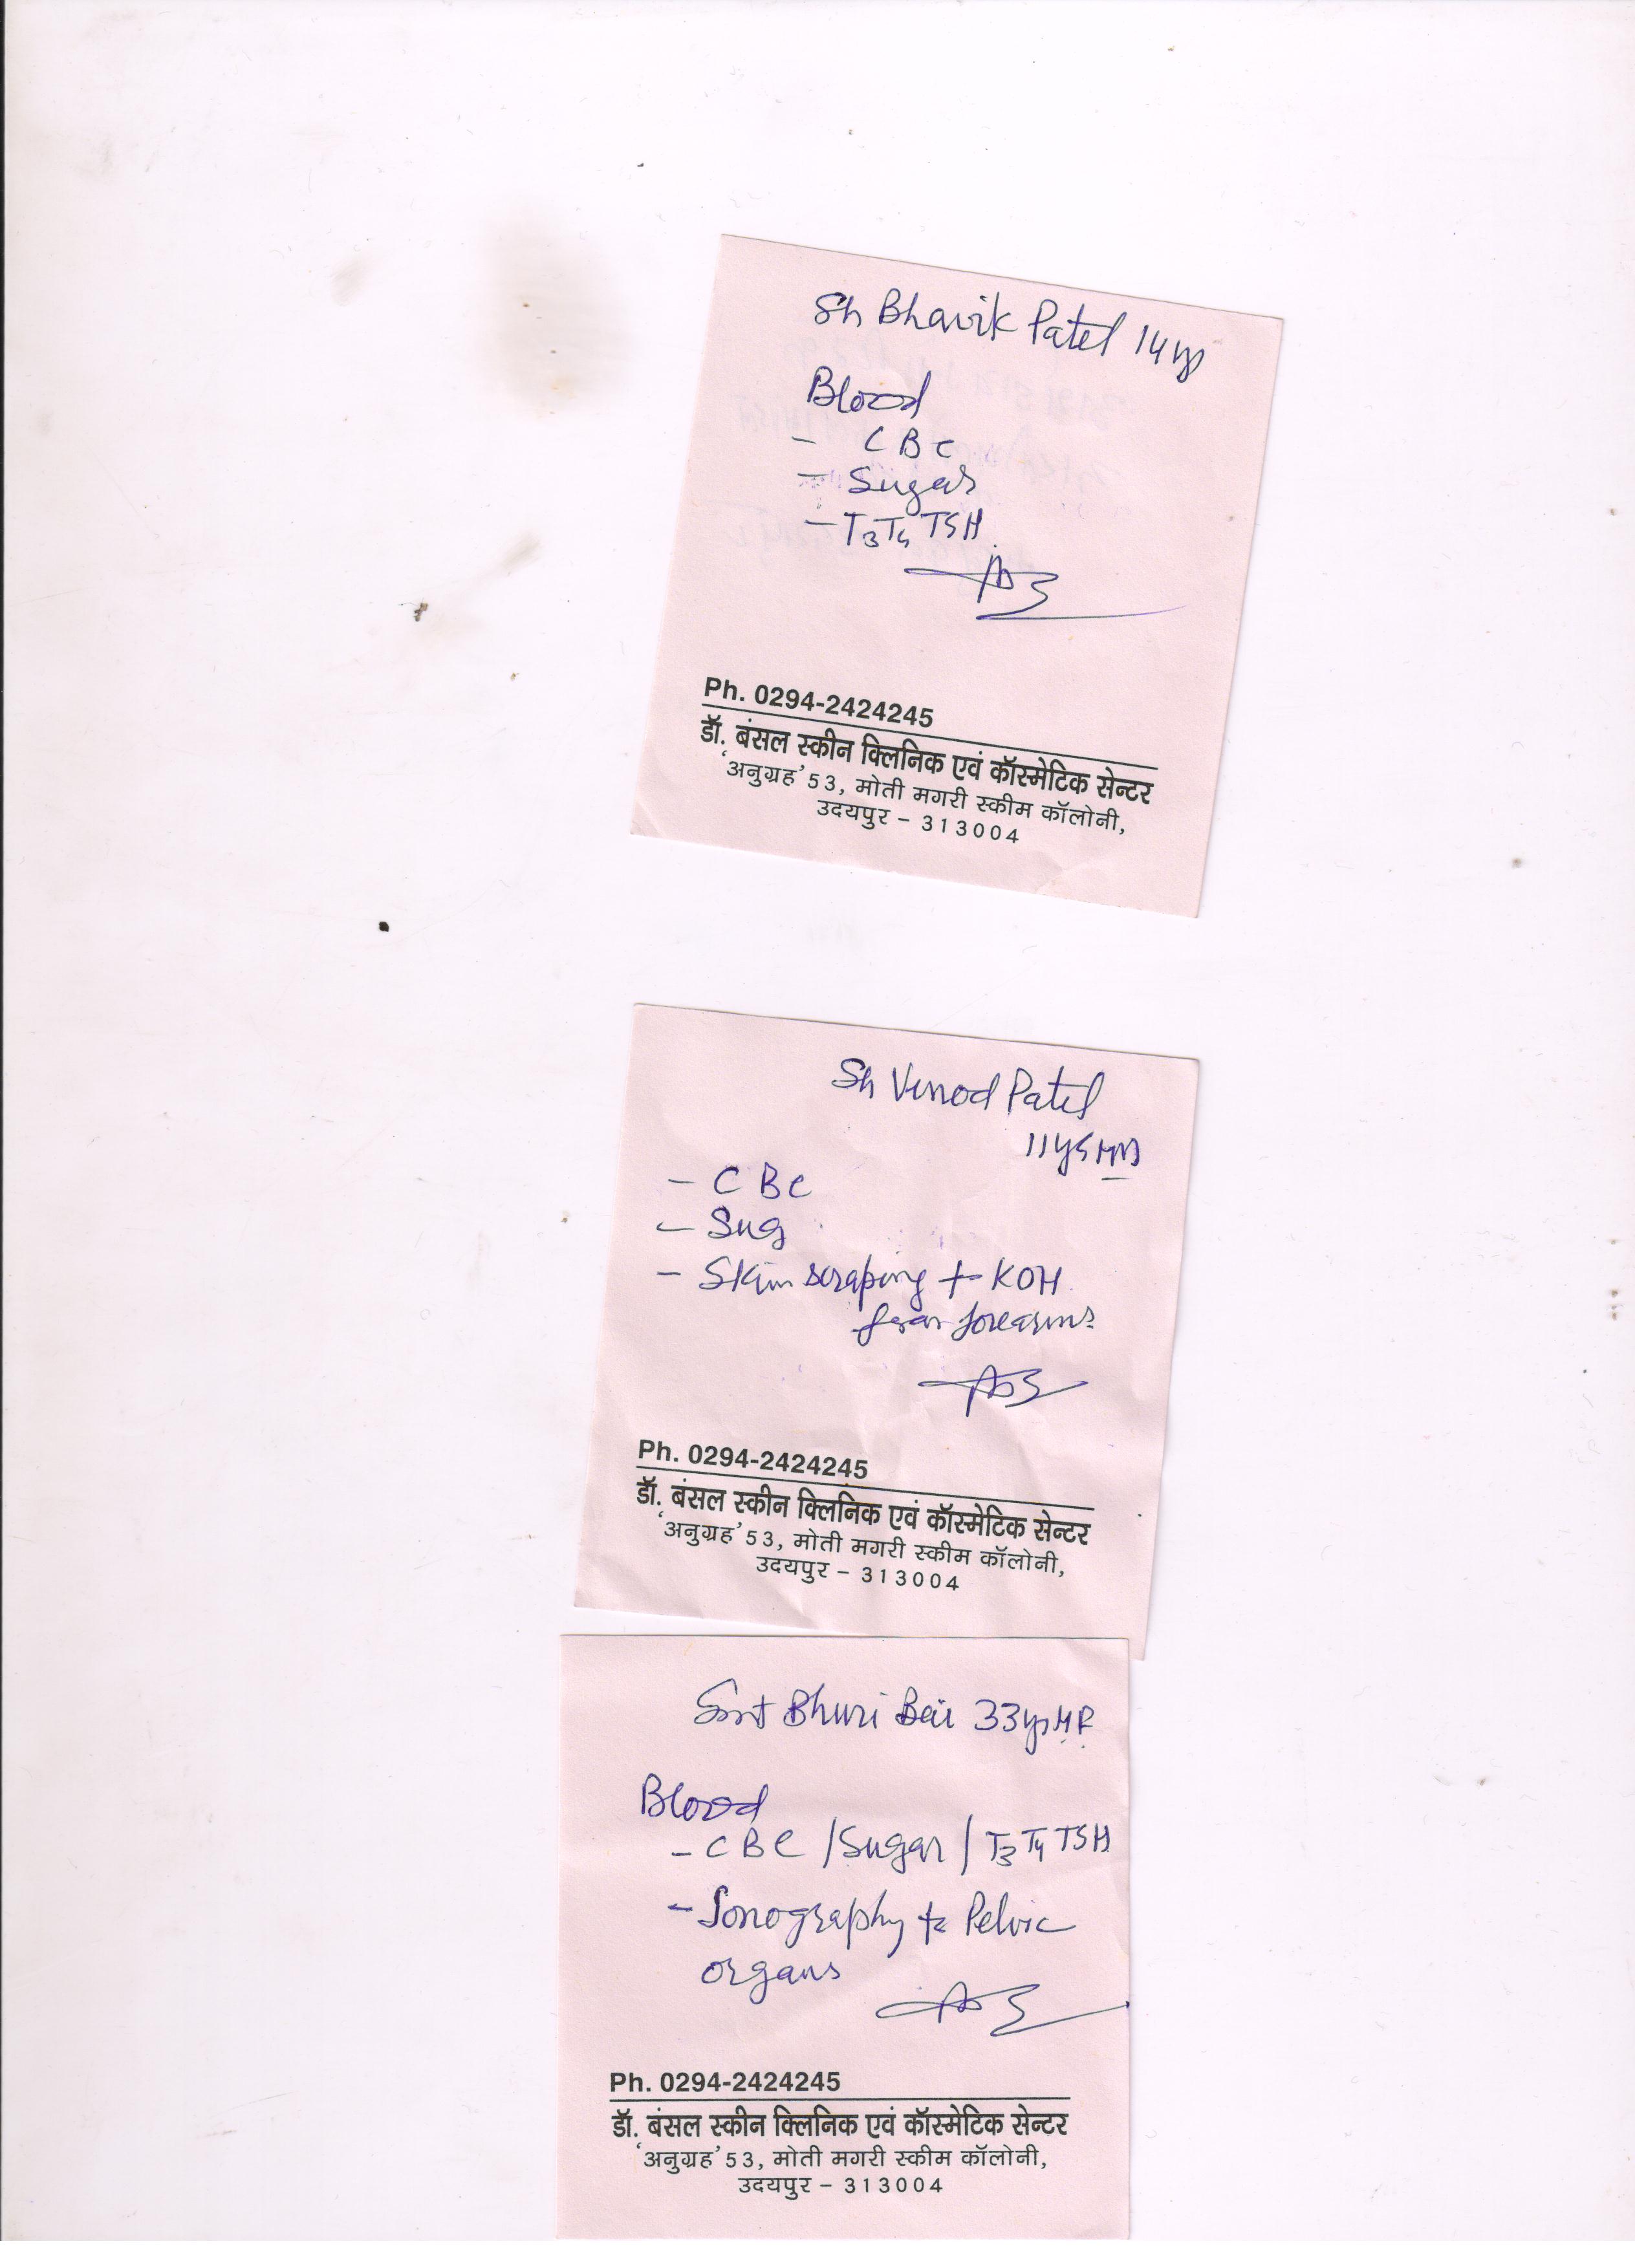 Sh Bhavik Patel 14 yrs
Blood
- CBC
- Sugar
- T3 T4 TSH
Ph. 0294-2424245
डॉ. बंसल स्कीन क्लिनिक एवं कॉस्मेटिक सेन्टर
'अनुग्रह' 53, मोती मगरी स्कीम कॉलोनी,
उदयपुर - 313004
Sh Vinod Patel
11 y
- CBC
- Sug
- Skin scraping for KOH
from forearms
Ph. 0294-2424245
डॉ. बंसल स्कीन क्लिनिक एवं कॉस्मेटिक सेन्टर
'अनुग्रह' 53, मोती मगरी स्कीम कॉलोनी,
उदयपुर - 313004
Smt Bhuri Bai 33 yrs HF
Blood
- CBC / Sugar / T3 T4 TSH
- Sonography for Pelvic
organs
Ph. 0294-2424245
डॉ. बंसल स्कीन क्लिनिक एवं कॉस्मेटिक सेन्टर
'अनुग्रह' 53, मोती मगरी स्कीम कॉलोनी,
उदयपुर - 313004